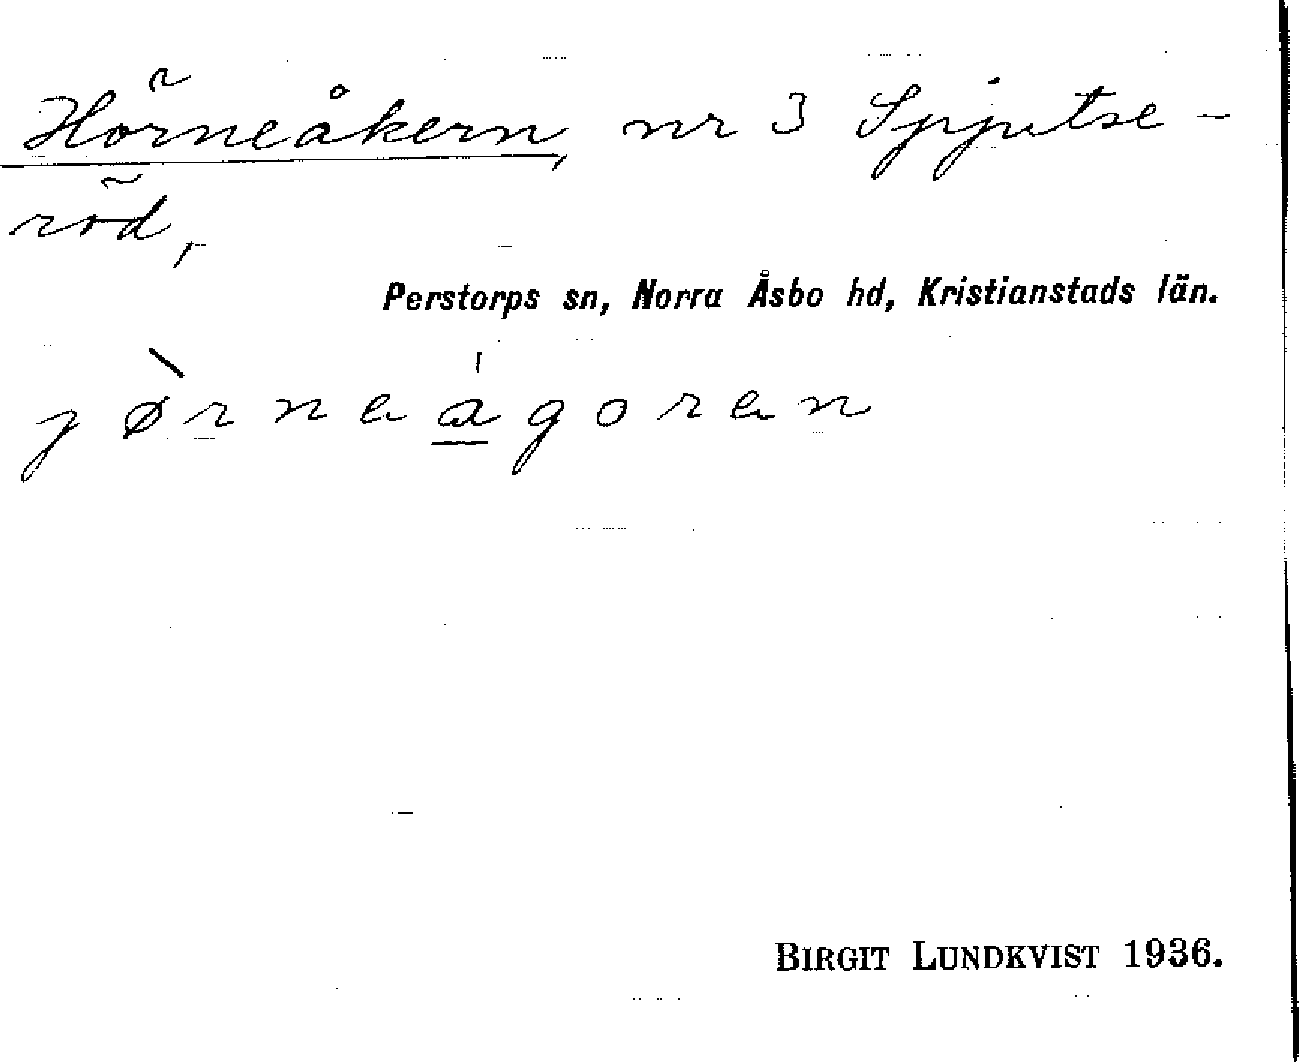 Hörneåkern, nr 3 Spjutse-
röd,
Perstorps sn, Norra Åsbo hd, Kristianstads län.
jø̀rnea̲̍goren
BIRGIT LUNDKVIST 1936.